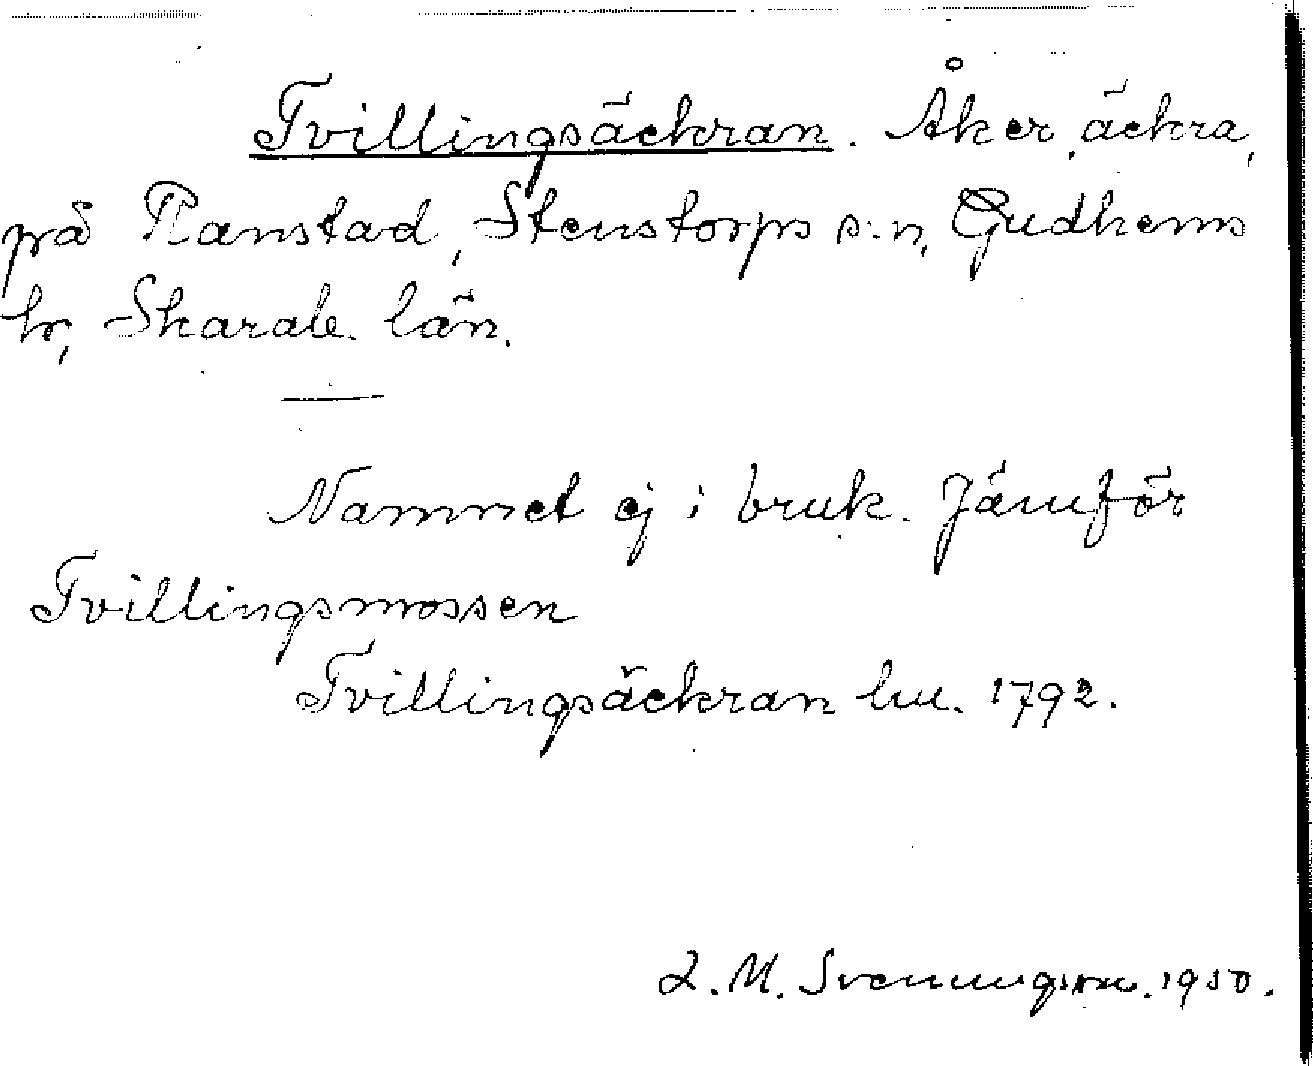 Tvillingsäckran. Åker, äckra,
på Ranstad, Stenstorps s:n, Gudhems
hr, Skarab. län.
Namnet ej i bruk. Jämför
Tvillingsmossen
Tvillingsäckran lm. 1792.
L. M. Svenungsson. 1950.